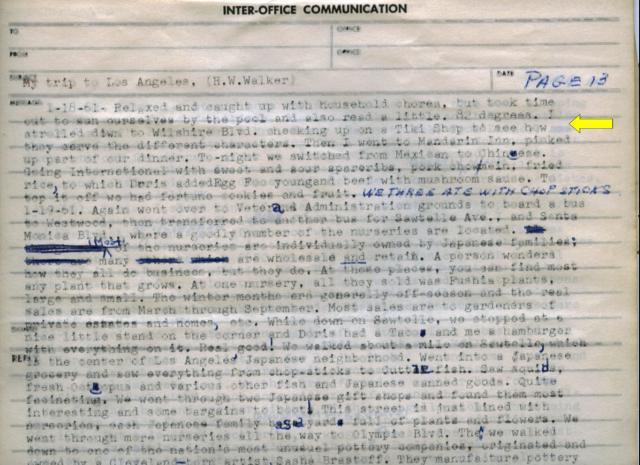 INTER-OFFICE COMMUNICATION
TO OFFICE
FROM OFFICE
SUBJECT My trip to Los Angeles, (H.W.Walker) DATE PAGE 13
MESSAGE
1-18-61- Relaxed and caught up with household chores, but took time
out to sun ourselves by the pool and also read a little. 82 degrees. I
strolled down to Wilshire Blvd. checking up on a Tiki Shop to see how
they serve the different characters. Then I went to Mandarin Inn, picked
up part of our dinner. To-night we switched from Mexican to Chinese.
Going International with sweet and sour spareribs, pork chowmein, fried
rice, to which Doris addedEgg Foo youngand beef with mushroom sauce. To
top it off we had fortune cookies and fruit. WE THREE ATE WITH CHOP STICKS
1-19-61. Again went over to Veteran Administration grounds to board a bus
to Westwood, then transferred to another bus for Sawtelle Ave., and Santa
Monica Blvd. where a goodly number of the nurseries are located.
Most of the nurseries are individually owned by Japanese families;
many are wholesale and retail. A person wonders
how they all do business, but they do. At those places, you can find most
any plant that grows. At one nursery, all they sold was Fushia plants,
large and small. The winter months are generally off-season and the real
sales are from March through September. Most sales are to gardeners of
private estates and homes, etc. While down on Sawtelle, we stopped at a
nice little stand on the corner and Doris had a Taco and me a hamburger
with everything on it. Real good! We walked about a mile on Sawtelle, which
is the center of Los Angeles Japanese neighborhood. Went into a Japanese
grocery and saw everything from chop-sticks to Cuttle fish. Saw squids,
fresh Octopus and various other fish and Japanese canned goods. Quite
fascinating. We went through two Japanese gift shops and found them most
interesting and some bargains to boot! This street is just lined with
nurseries, each Japanese family has a yard full of plants and flowers. We
went through more nurseries all the way to Olympic Blvd. Then we walked
down to one of the nation's most unusual pottery companies, originated and
owned by a Cleveland-born artist, Sasha Brastoff. They manufaiture pottery